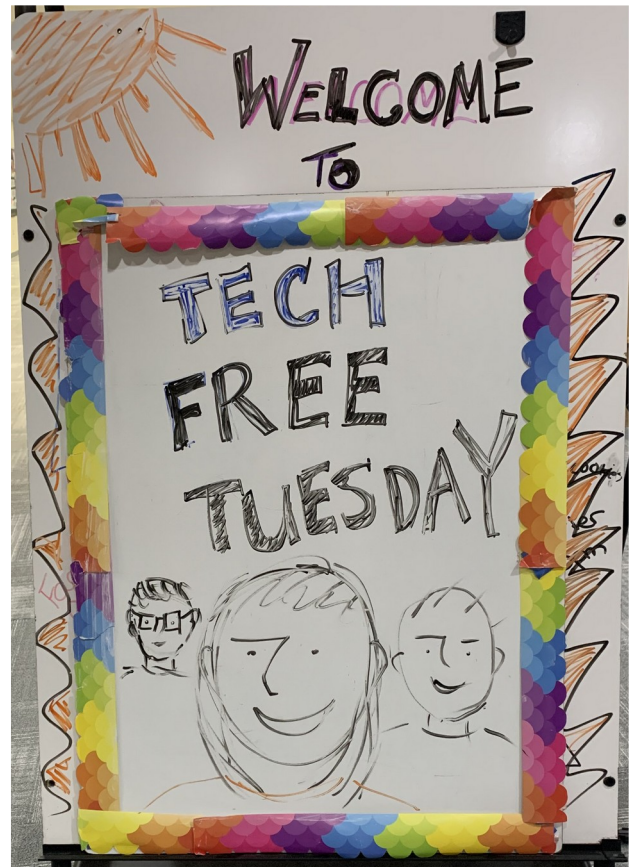 WELCOME
TO
TECH
FREE
TUESDAY